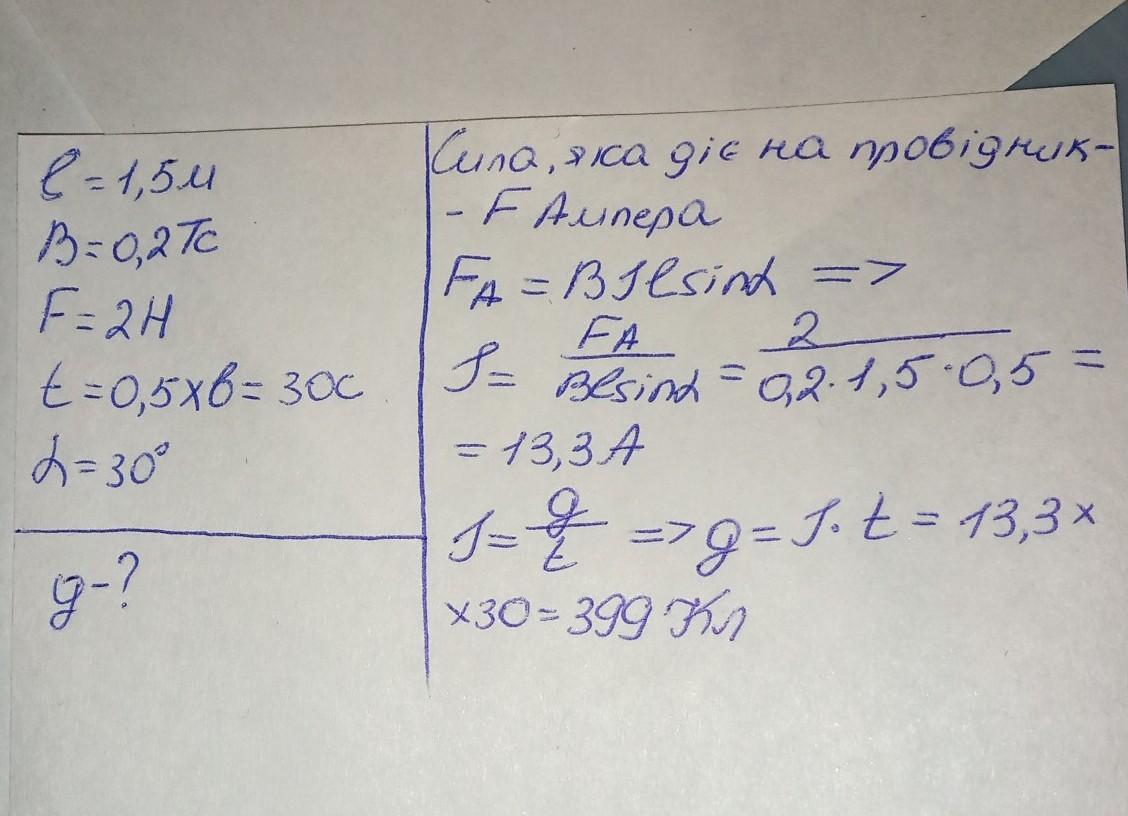 l = 1,5 м
B = 0,2 Тс
F = 2 Н
t = 0,5 хв = 30 с
α = 30°
q - ?
Сила, яка діє на провідник -
- F Ампера
F_A = B I l sinα =>
I = F_A / B l sinα = 2 / 0,2 · 1,5 · 0,5 =
= 13,3 А
I = q / t => q = I · t = 13,3 ×
×30 = 399 Кл